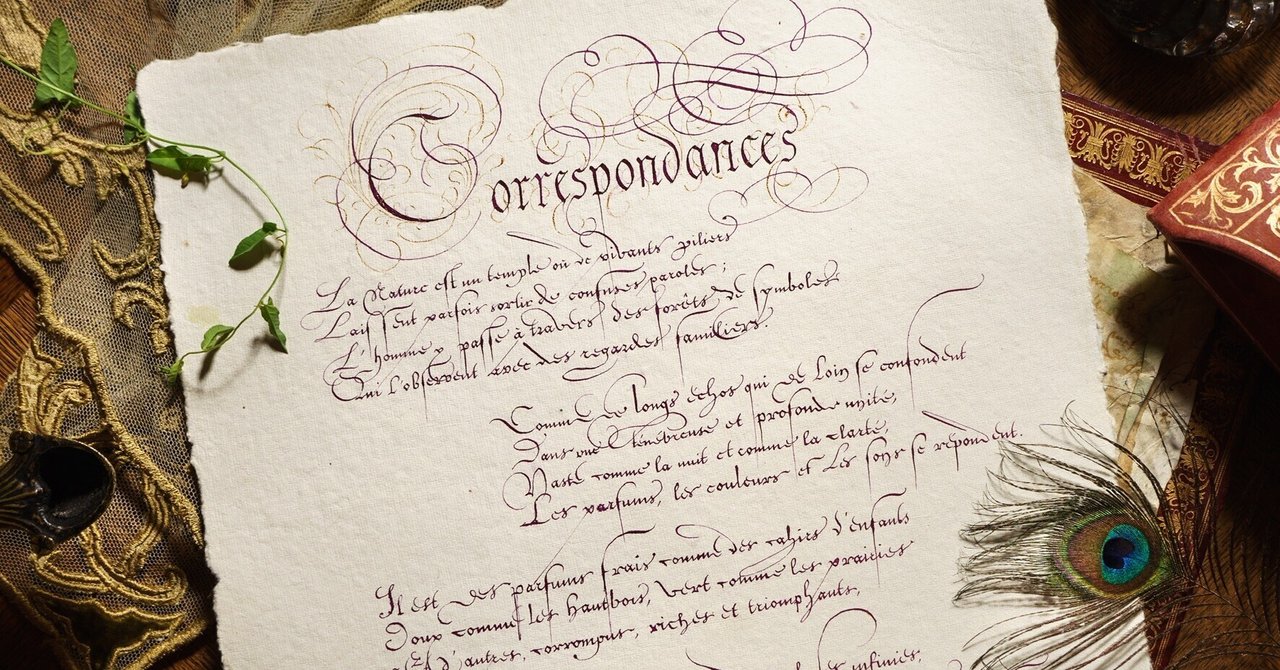 Correspondances
La Nature est un temple où de vivants piliers
Laissent parfois sortir de confuses paroles ;
L'homme y passe à travers des forêts de symboles
Qui l'observent avec des regards familiers.
Comme de longs échos qui de loin se confondent
Dans une ténébreuse et profonde unité,
Vaste comme la nuit et comme la clarté,
Les parfums, les couleurs et les sons se répondent.
Il est des parfums frais comme des cahirs d'enfants
Doux comme les hautbois, vert comme les prairies
Et d'autres, corrompus, riches et triomphants,
infinies,